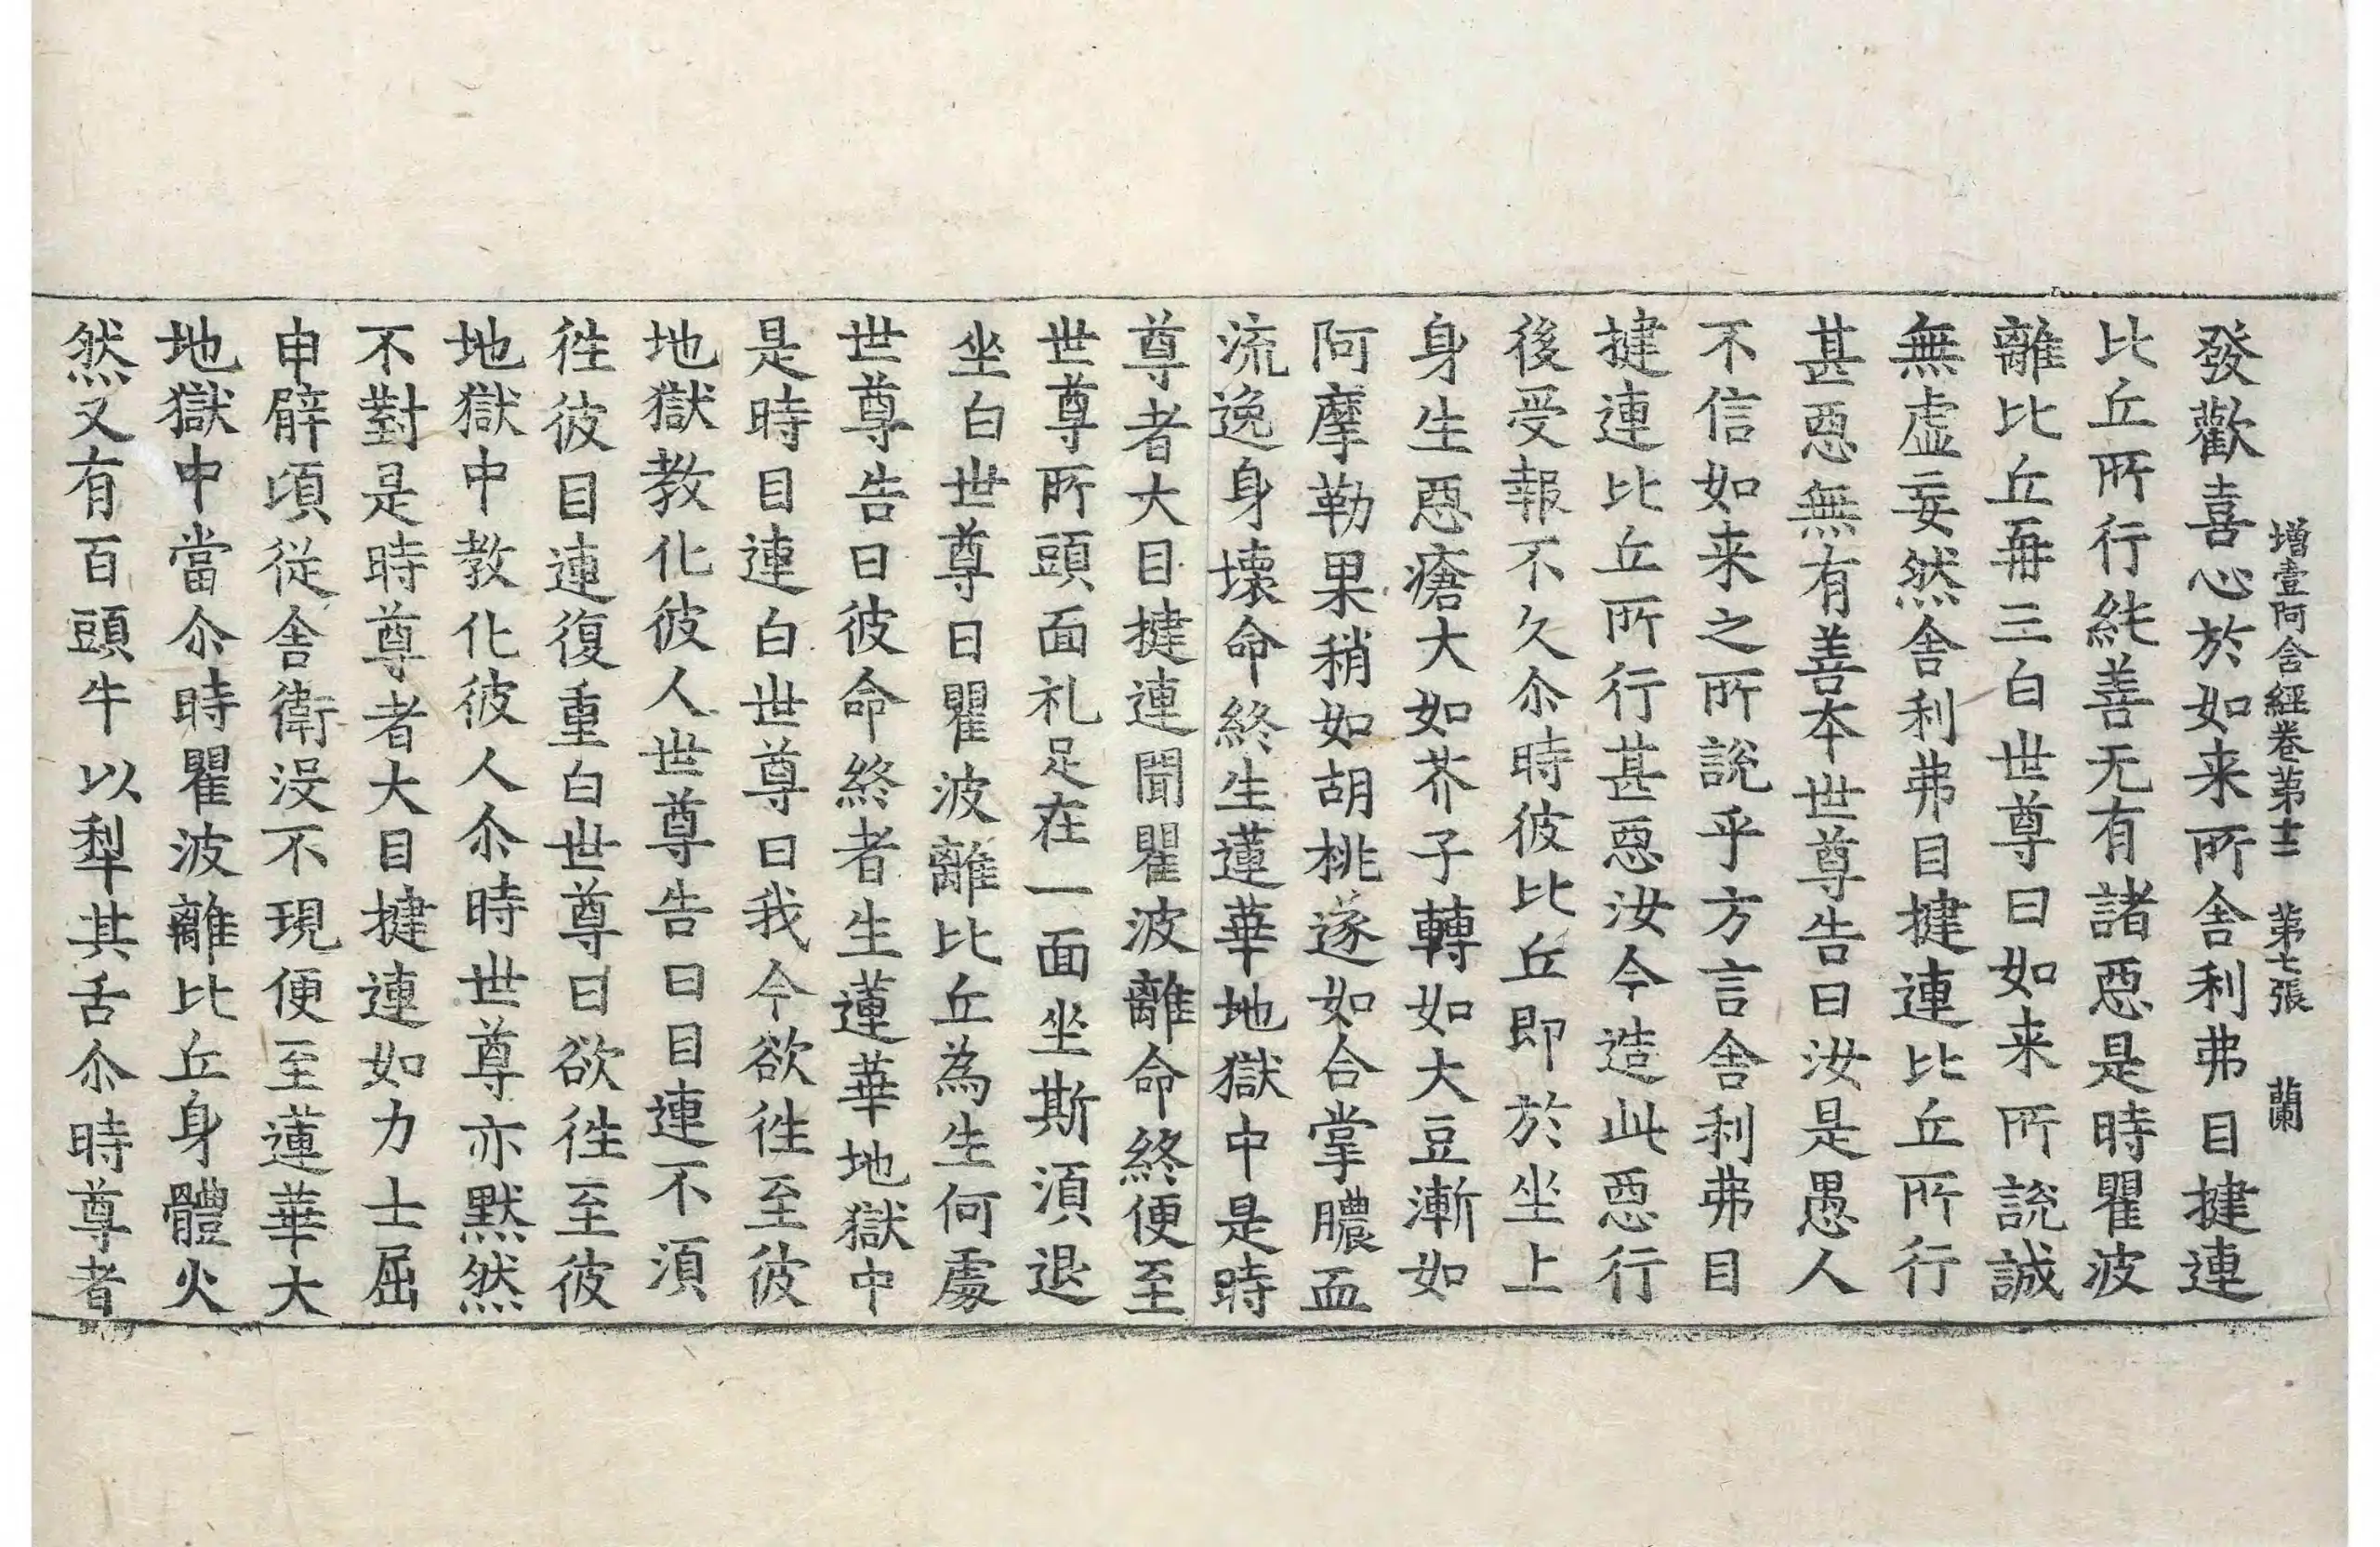 增壹阿含經卷第十二　第七張　蘭
發歡喜心於如来所舍利弗目揵連
比丘所行純善无有諸惡是時瞿波
離比丘再三白世尊曰如来所說誠
無虛妄然舍利弗目揵連比丘所行
甚惡無有善本世尊告曰汝是愚人
不信如来之所說乎方言舍利弗目
揵連比丘所行甚惡汝今造此惡行
後受報不久尒時彼比丘即於坐上
身生惡瘡大如芥子轉如大豆漸如
阿摩勒果稍如胡桃遂如合掌膿血
流逸身壞命終生蓮華地獄中是時
尊者大目揵連聞瞿波離命終便至
世尊所頭面礼足在一面坐斯須退
坐白世尊曰瞿波離比丘為生何處
世尊告曰彼命終者生蓮華地獄中
是時目連白世尊曰我今欲徃至彼
地獄教化彼人世尊告曰目連不須
徃彼目連復重白世尊曰欲徃至彼
地獄中教化彼人尒時世尊亦默然
不對是時尊者大目揵連如力士屈
申臂頃從舍衛沒不現便至蓮華大
地獄中當尒時瞿波離比丘身體火
然又有百頭牛以犁其舌尒時尊者